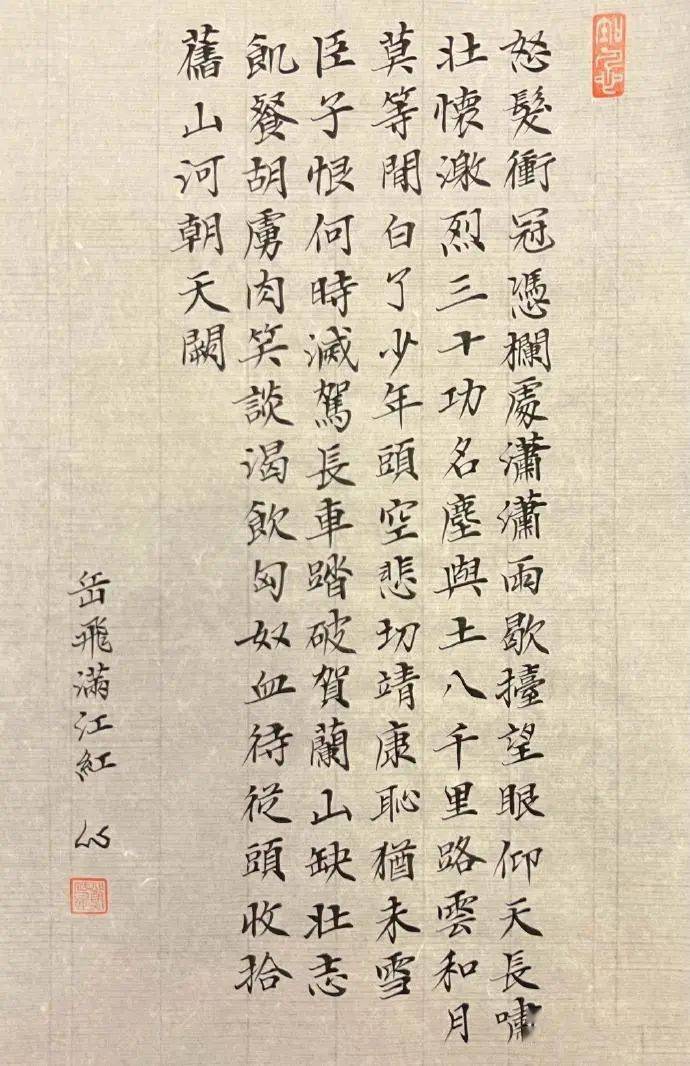 怒髮衝冠憑欄處瀟瀟雨歇擡望眼仰天長嘯
壯懷激烈三十功名塵與土八千里路雲和月
莫等閒白了少年頭空悲切靖康恥猶未雪
臣子恨何時滅駕長車踏破賀蘭山缺壯志
飢餐胡虜肉笑談渴飲匈奴血待從頭收拾
舊山河朝天闕
岳飛滿江紅